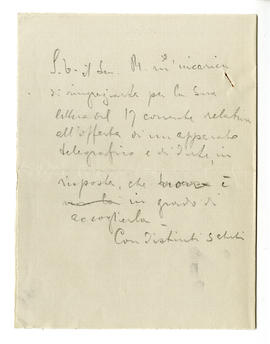 S. E. il Sen. M. m'incarica
di ringraziarla per la Sua
lettera del 17 corrente relativa
all'offerta di un apparato
telegrafico e di dirle, in
risposta, che è
in grado di
accoglierla
Con distinti saluti